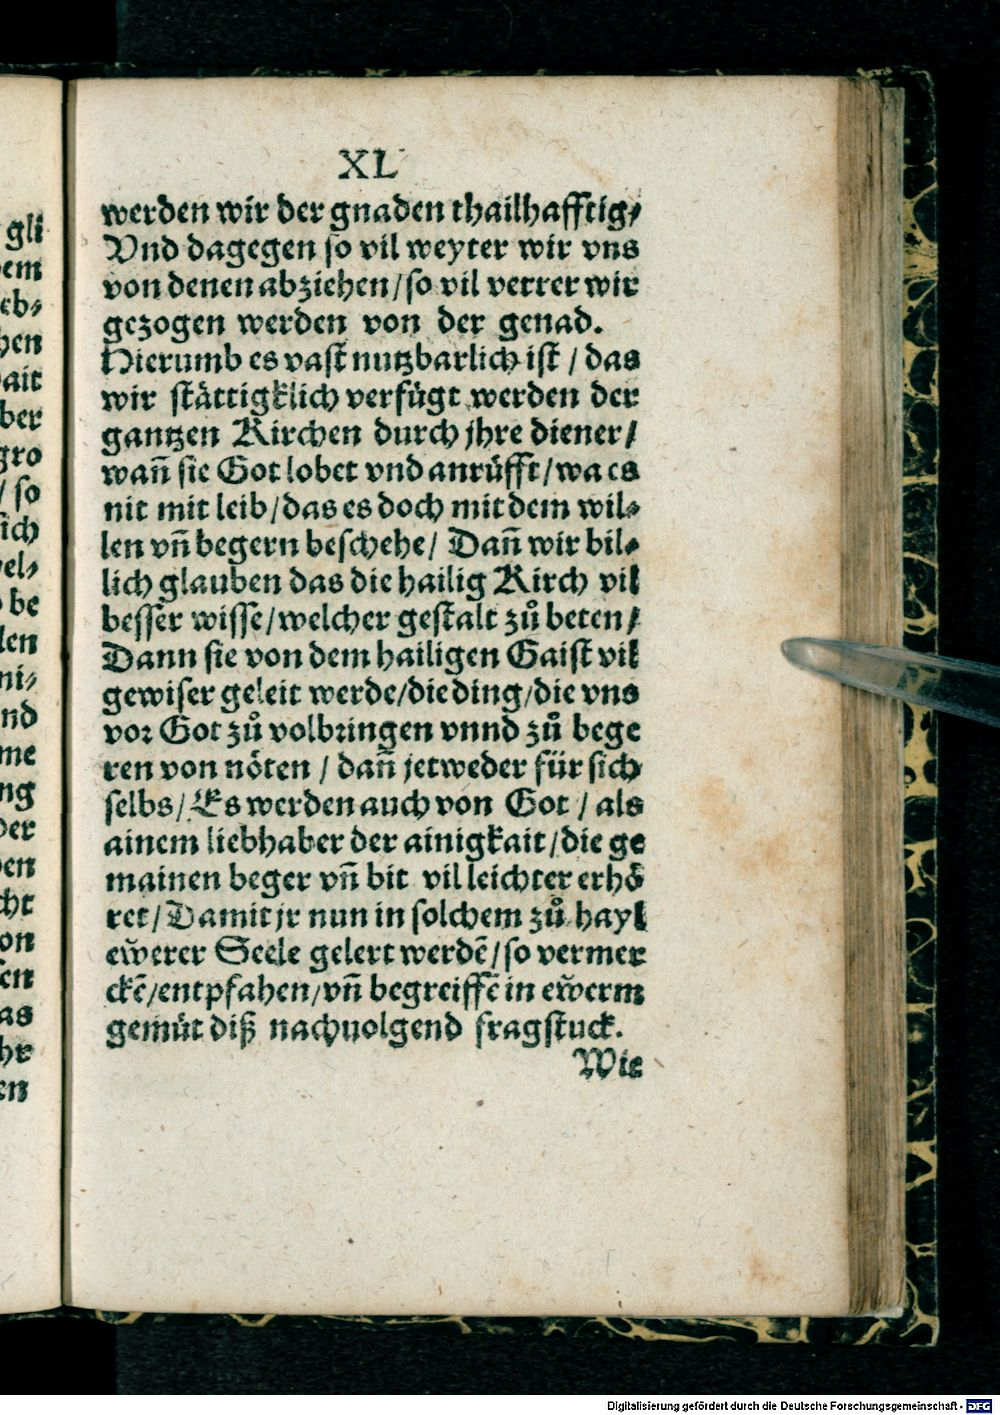 XL
werden wir der gnaden thailhafftig/
Vnd dagegen so vil weyter wir vns
von denen abziehen/so vil verrer wir
gezogen werden von der genad.
Hierumb es vast nutzbarlich ist / das
wir stättigklich verfügt werden der
gantzen Kirchen durch jhre diener/
wañ sie Got lobet vnd anrüfft/wa es
nit mit leib/das es doch mit dem wil⸗
len vñ begern beschehe/ Dañ wir bil⸗
lich glauben das die hailig Kirch vil
besser wisse/welcher gestalt zů beten/
Dann sie von dem hailigen Gaist vil
gewiser geleit werde/die ding/die vns
vor Got zů volbringen vnnd zů bege
ren von nöten / dañ jetweder für sich
selbs/ Es werden auch von Got / als
ainem liebhaber der ainigkait/die ge
mainen beger vñ bit vil leichter erhö
ret/Damit jr nun in solchem zů hayl
ewerer Seele gelert werdē/so vermer
ckē/entpfahen/vñ begreiffē in ewerm
gemüt diß nachuolgend fragstuck.
Wie
gli
dem
eb⸗
hen
ait
ber
gro
/ so
sich
vel⸗
be
len
ni⸗
nd
me
ng
der
den
cht
on
en
as
hr
en
Digitalisierung gefördert durch die Deutsche Forschungsgemeinschaft - DFG